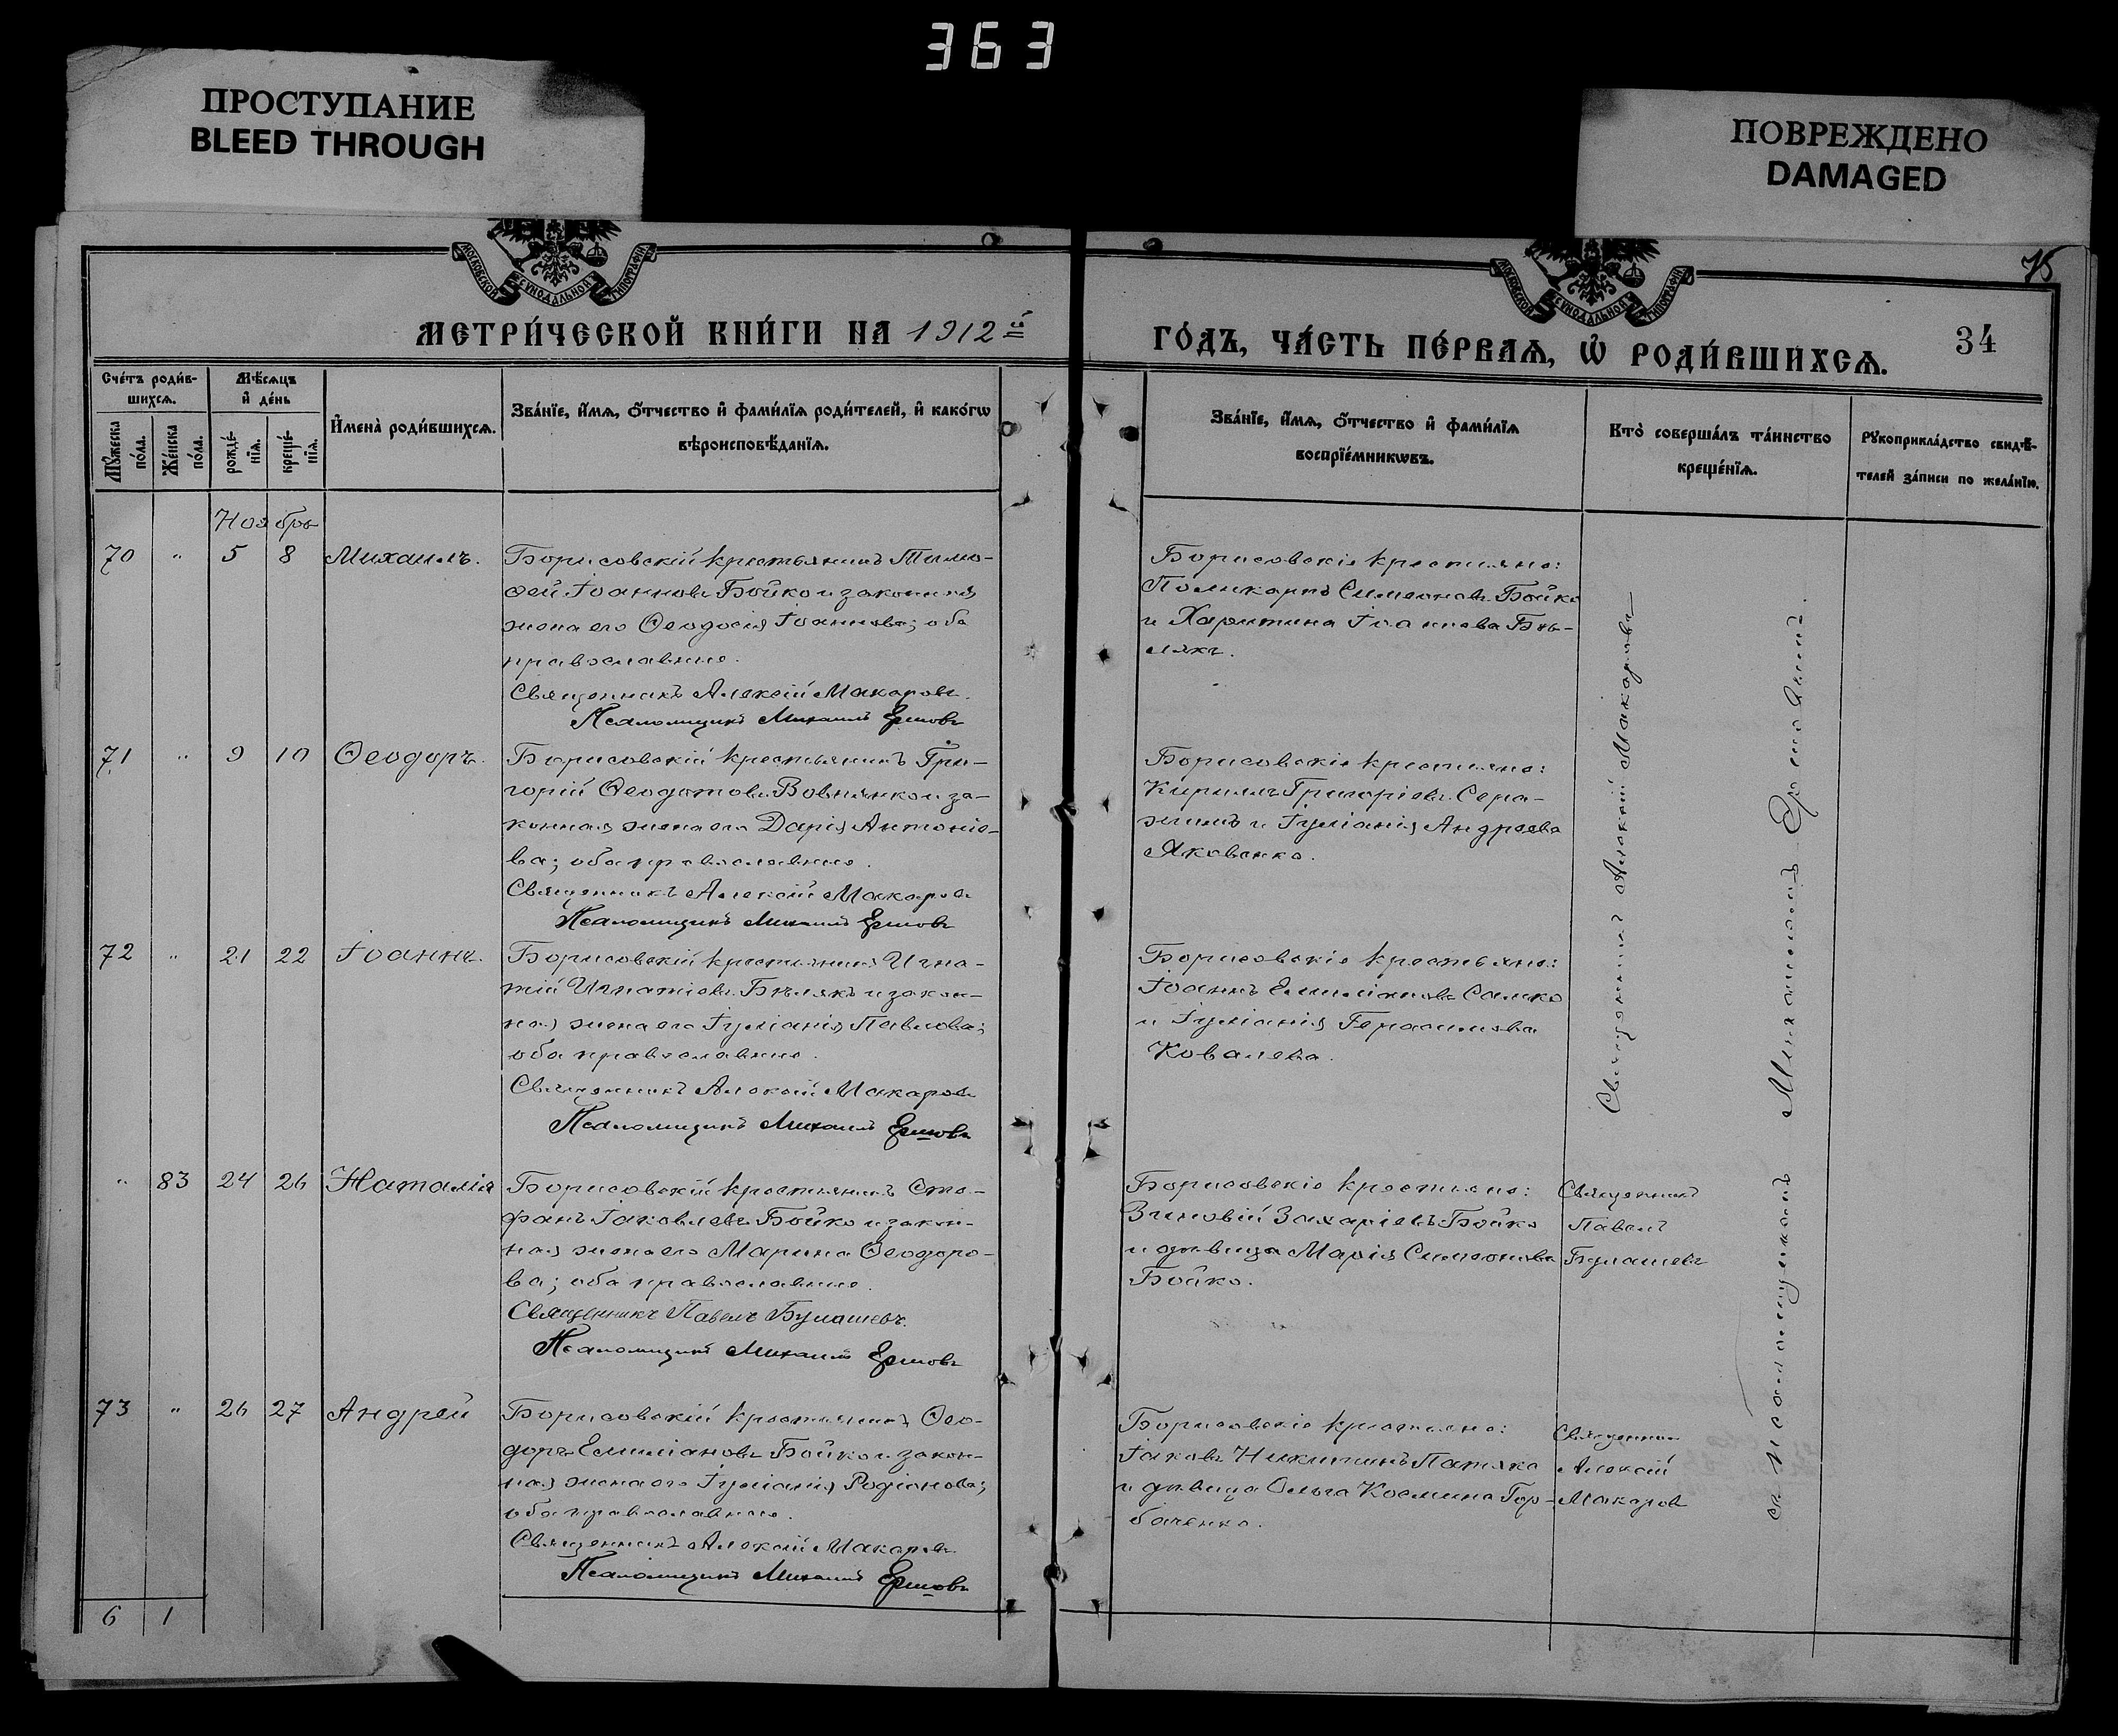 363
ПРОСТУПАНИЕ
BLEED THROUGH
ПОВРЕЖДЕНО
DAMAGED
МОСКОВСКОЙ СѴНОДАЛЬНОЙ ТИПОГРАФІИ
МОСКОВСКОЙ СѴНОДАЛЬНОЙ ТИПОГРАФІИ
75
МЕТРИ́ЧЕСКОЙ КНИ́ГИ НА 1912й
ГО́ДЪ, ЧА́СТЬ ПЕ́РВАѦ, Ѡ҆ РОДИ́ВШИХСѦ.
34
Сче́тъ роди́в-
шихсѧ.
Мꙋ́жеска по́ла.
Же́нска по́ла.
Мѣ́сѧцъ
и҆ де́нь
рожде́-
нїѧ.
креще́-
нїѧ.
И҆мена̀ роди́вшихсѧ.
Зва́нїе, и҆́мѧ, ѻ҆́тчество и҆ фами́лїѧ роди́телей, и҆ како́гѡ
вѣроисповѣ́данїѧ.
Зва́нїе, и҆́мѧ, ѻ҆́тчество и҆ фами́лїѧ
воспрїе́мникѡвъ.
Кто̀ соверша́лъ та́инство
креще́нїѧ.
Рꙋкоприкла́дство свидѣ́-
телей за́писи по жела́нїю.
Ноябрь
70 " 5 8 Михаилъ.
Борисовскій крестьянинъ Тимо-
ѳей Іоанновъ Бойко и законная
жена его Ѳеодосія Іоаннова; оба
православные.
Священникъ Алексій Макаровъ.
Псаломщикъ Михаилъ Ершовъ
Борисовскіе крестьяне:
Поликарпъ Симеоновъ Бойко
и Харитина Іоаннова Бѣ-
лякъ.
71 " 9 10 Ѳеодоръ.
Борисовскій крестьянинъ Гри-
горій Ѳеодотовъ Вовнянко и за-
конная жена его Дарія Антоніе-
ва; оба православные.
Священникъ Алексій Макаровъ
Псаломщикъ Михаилъ Ершовъ
Борисовскіе крестьяне:
Кириллъ Григоріевъ Сера-
жимъ и Іуліанія Андреева
Яковенко.
72 " 21 22 Іоаннъ.
Борисовскій крестьянинъ Игна-
тій Игнатіевъ Бѣлякъ и закон-
ная жена его Іуліанія Павлова;
оба православные.
Священникъ Алексій Макаровъ
Псаломщикъ Михаилъ Ершовъ
Борисовскіе крестьяне:
Іоаннъ Емиліановъ Салко
и Іуліанія Герасимова
Ковалева.
Священникъ Алексій Макаровъ
съ псаломщикомъ Михаиломъ Ершовымъ.
" 83 24 26 Наталія
Борисовскій крестьянинъ Сте-
фанъ Іаковлевъ Бойко и закон-
ная жена его Марина Ѳеодоро-
ва; оба православные.
Священникъ Павелъ Булашевъ.
Псаломщикъ Михаилъ Ершовъ
Борисовскіе крестьяне:
Зиновій Захаріевъ Бойко
и дѣвица Марія Симеонова
Бойко.
Священникъ
Павелъ
Булашевъ
73 " 26 27 Андрей
Борисовскій крестьянинъ Ѳео-
доръ Емиліановъ Бойко и закон-
ная жена его Іуліанія Родіонова;
оба православные.
Священникъ Алексій Макаровъ
Псаломщикъ Михаилъ Ершовъ
Борисовскіе крестьяне:
Іаковъ Никитинъ Патяка
и дѣвица Ольга Космина Гор-
баченко.
Священникъ
Алексій
Макаровъ
6 1